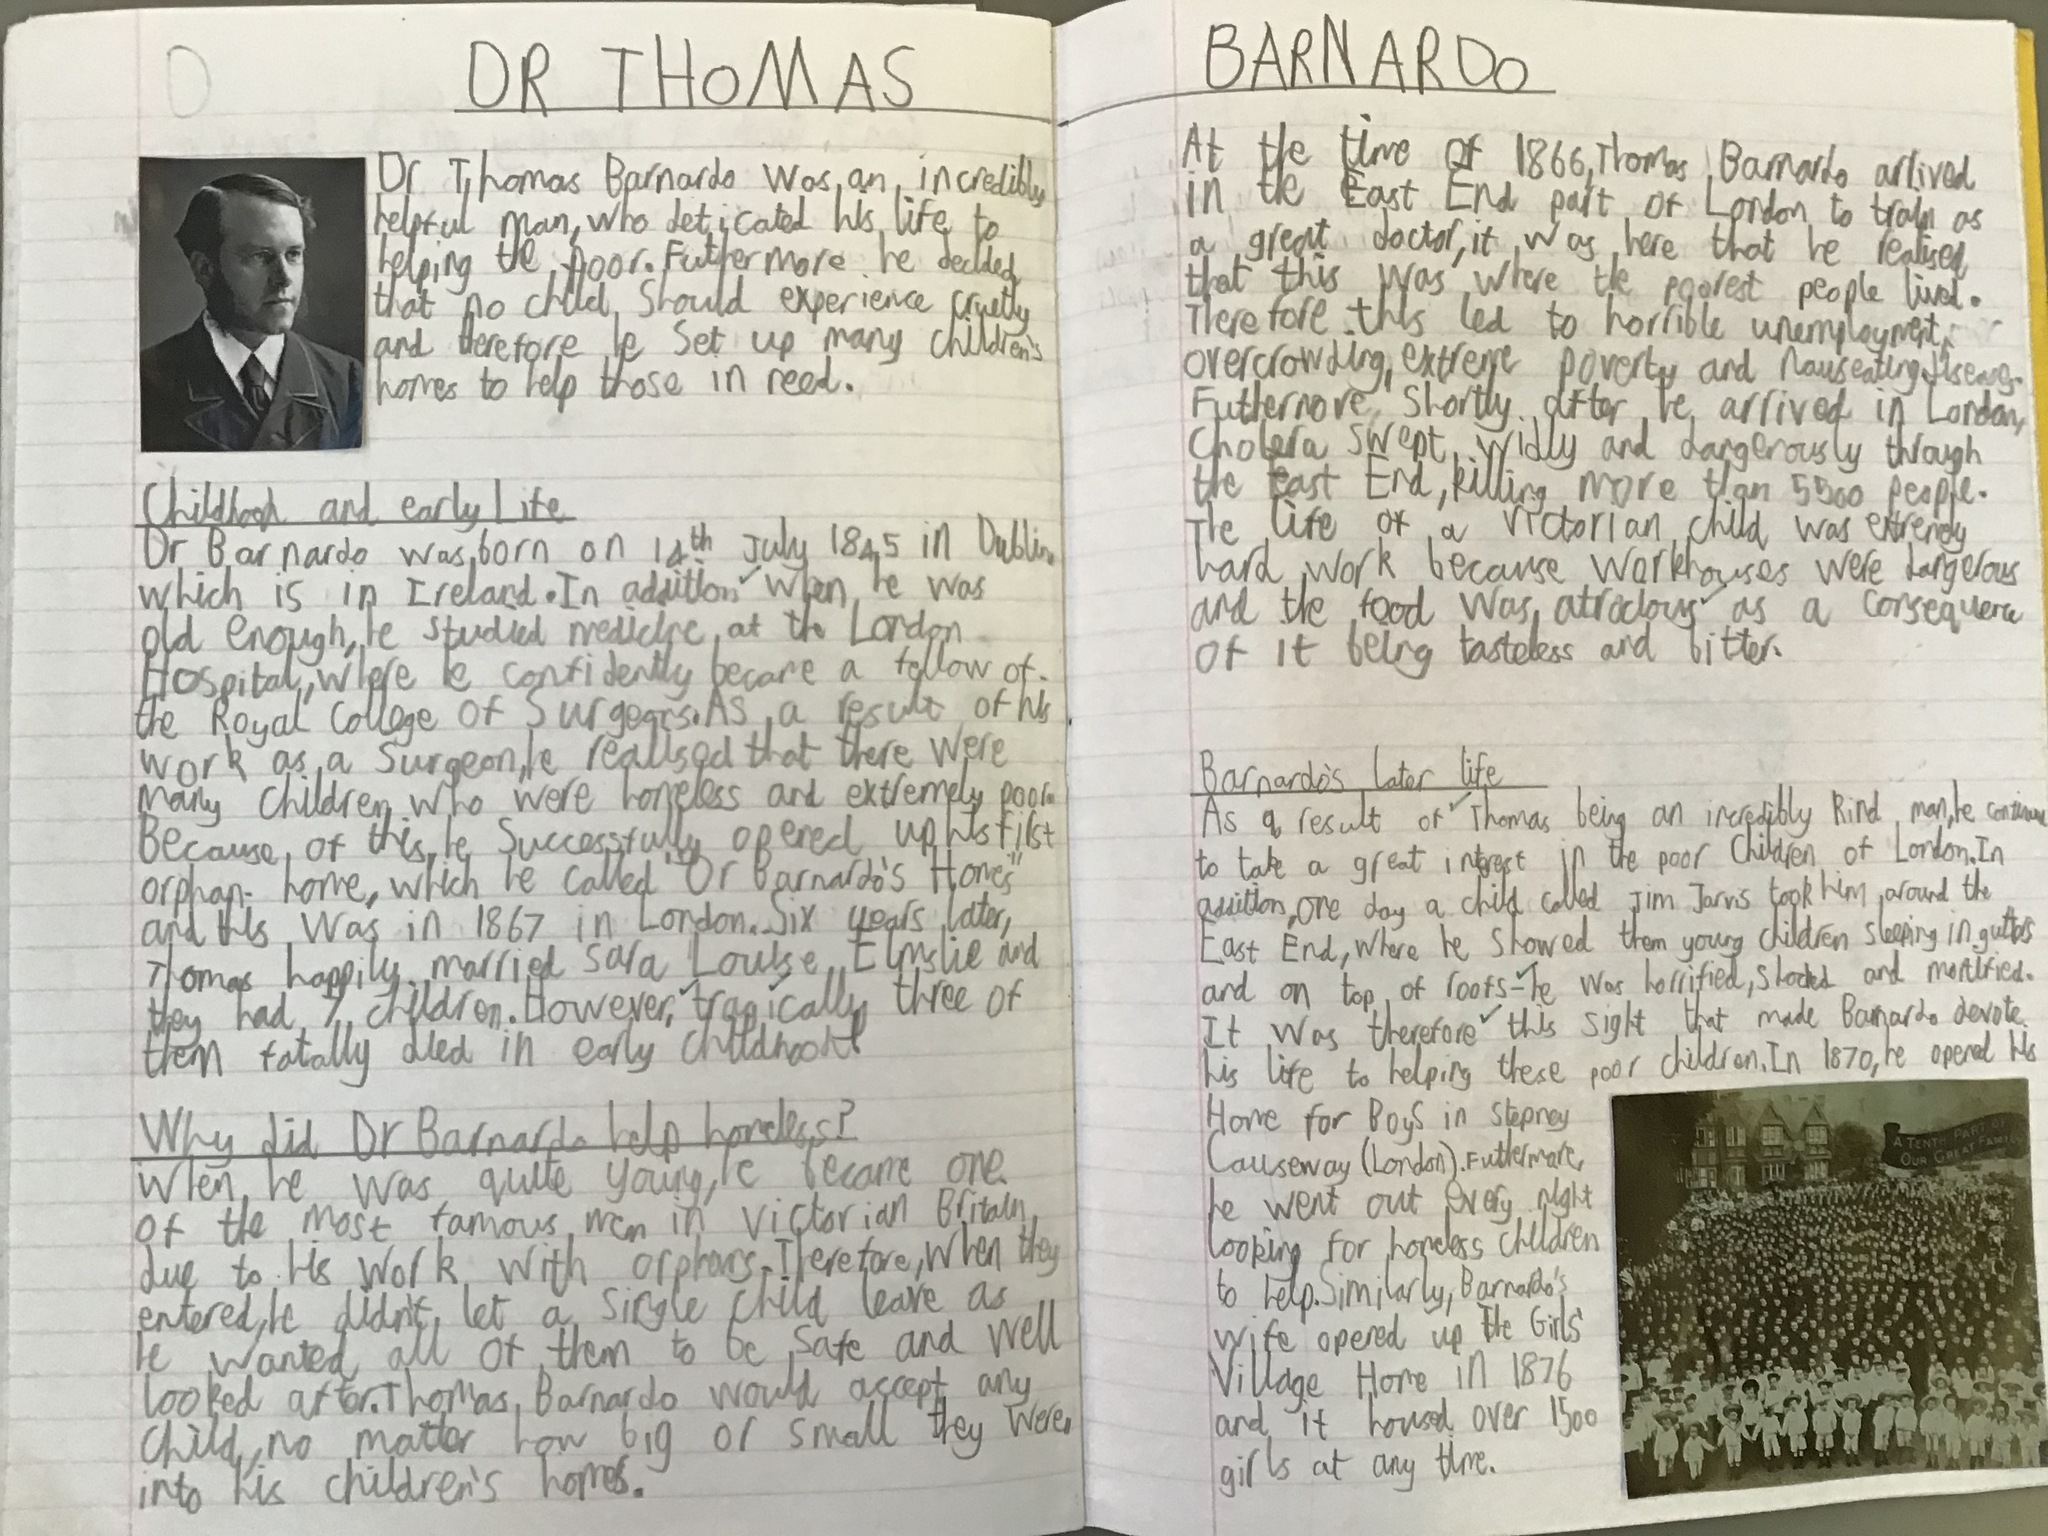 DR THOMAS BARNARDO
Dr Thomas Barnardo was an incredibly
helpful man, who deticated his life to
helping the poor. Futhermore he decided
that no child should experience cruelty
and therefore he set up many children's
homes to help those in need.
Childhood and early life
Dr Barnardo was born on 14th July 1845 in Dublin
which is in Ireland. In addition when he was
old enough, he studied medicine at the London
Hospital, where he confidently became a fellow of
the Royal College of Surgeons. As a result of his
work as a Surgeon, he realised that there were
many children who were homeless and extremely poor.
Because of this, he successfully opened up his first
orphan home, which he called "Dr Barnardo's Homes"
and this was in 1867 in London. Six years later,
Thomas happily married Sara Louise Elmslie and
they had 7 children. However, tragically three of
them fatally died in early childhood!
Why did Dr Barnardo help homeless?
When he was quite young, he became one
of the most famous men in Victorian Britain
due to his work with orphans. Therefore, when they
entered, he didn't let a single child leave as
he wanted all of them to be safe and well
looked after. Thomas Barnardo would accept any
child, no matter how big or small they were,
into his children's homes.
At the time of 1866, Thomas Barnardo arrived
in the East End part of London to train as
a great doctor, it was here that he realised
that this was where the poorest people lived.
Therefore this led to horrible unemployment,
overcrowding, extreme poverty and nauseating diseases.
Futhermore, shortly after he arrived in London,
Cholera swept widly and dangerously through
the East End, killing more than 5500 people.
The life of a victorian child was extremely
hard work because workhouses were dangerous
and the food was atrocious as a consequence
of it being tasteless and bitter.
Barnardo's later life
As a result of Thomas being an incredibly kind man, he continued
to take a great intrest in the poor children of London. In
addition, one day a child called Jim Jarvis took him around the
East End, where he showed them young children sleeping in gutters
and on top of roofs - he was horrified, shocked and mortified.
It was therefore this sight that made Barnardo devote
his life to helping these poor children. In 1870, he opened his
Home for Boys in Stepney
Causeway (London). Futhermore,
he went out every night
looking for homeless children
to help. Similarly, Barnardo's
wife opened up the Girls'
Village Home in 1876
and it housed over 1500
girls at any time.
A TENTH PART OF
OUR GREAT FAMILY